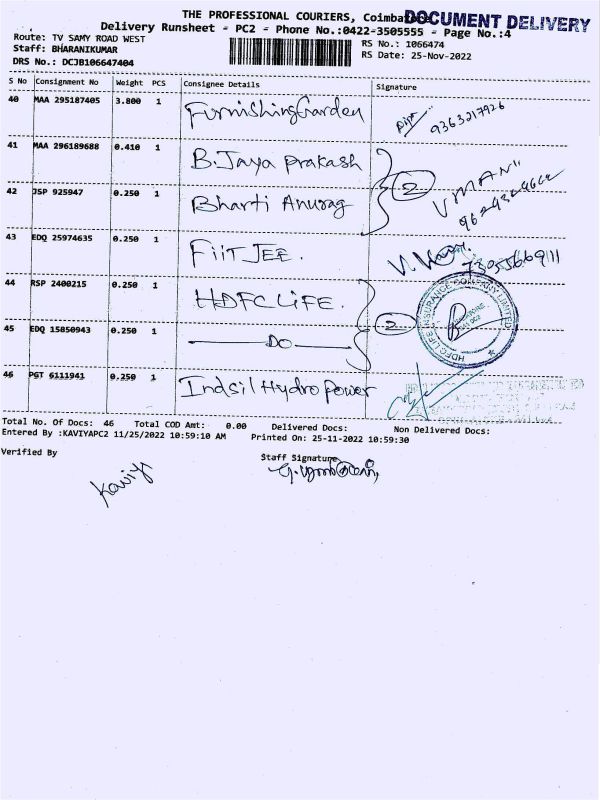 THE PROFESSIONAL COURIERS,
DOCUMENT DELIVERY
Delivery Runsheet - PC2 - Phone No.:0422-3505555 - Page No.:4
Route: TV SAMY ROAD WEST
Staff: BHARANIKUMAR
DRS No.: DCJB106647404
RS No.: 1066474
RS Date: 25-Nov-2022
S No Consignment No Weight PCS Consignee Details Signature
40 MAA 295187405 3.800 1 FurnishingGarden 9363217926
41 MAA 296189688 0.410 1 B.Jaya Prakash
2 VMANI
42 JSP 925947 0.250 1 Bharti Anurag
43 EDQ 25974635 0.250 1 FIITJEE.
44 RSP 2400215 0.250 1 HDFC LIFE.
HDFC LIFE INSURANCE COMPANY LIMITED
45 EDQ 15850943 0.250 1 DO 2
46 PGT 6111941 0.250 1 Indsil Hydro Power
Total No. Of Docs: 46 Total COD Amt: 0.00 Delivered Docs: Non Delivered Docs:
Entered By :KAVIYAPC2 11/25/2022 10:59:10 AM Printed On: 25-11-2022 10:59:30
Verified By Staff Signature
Kaviya